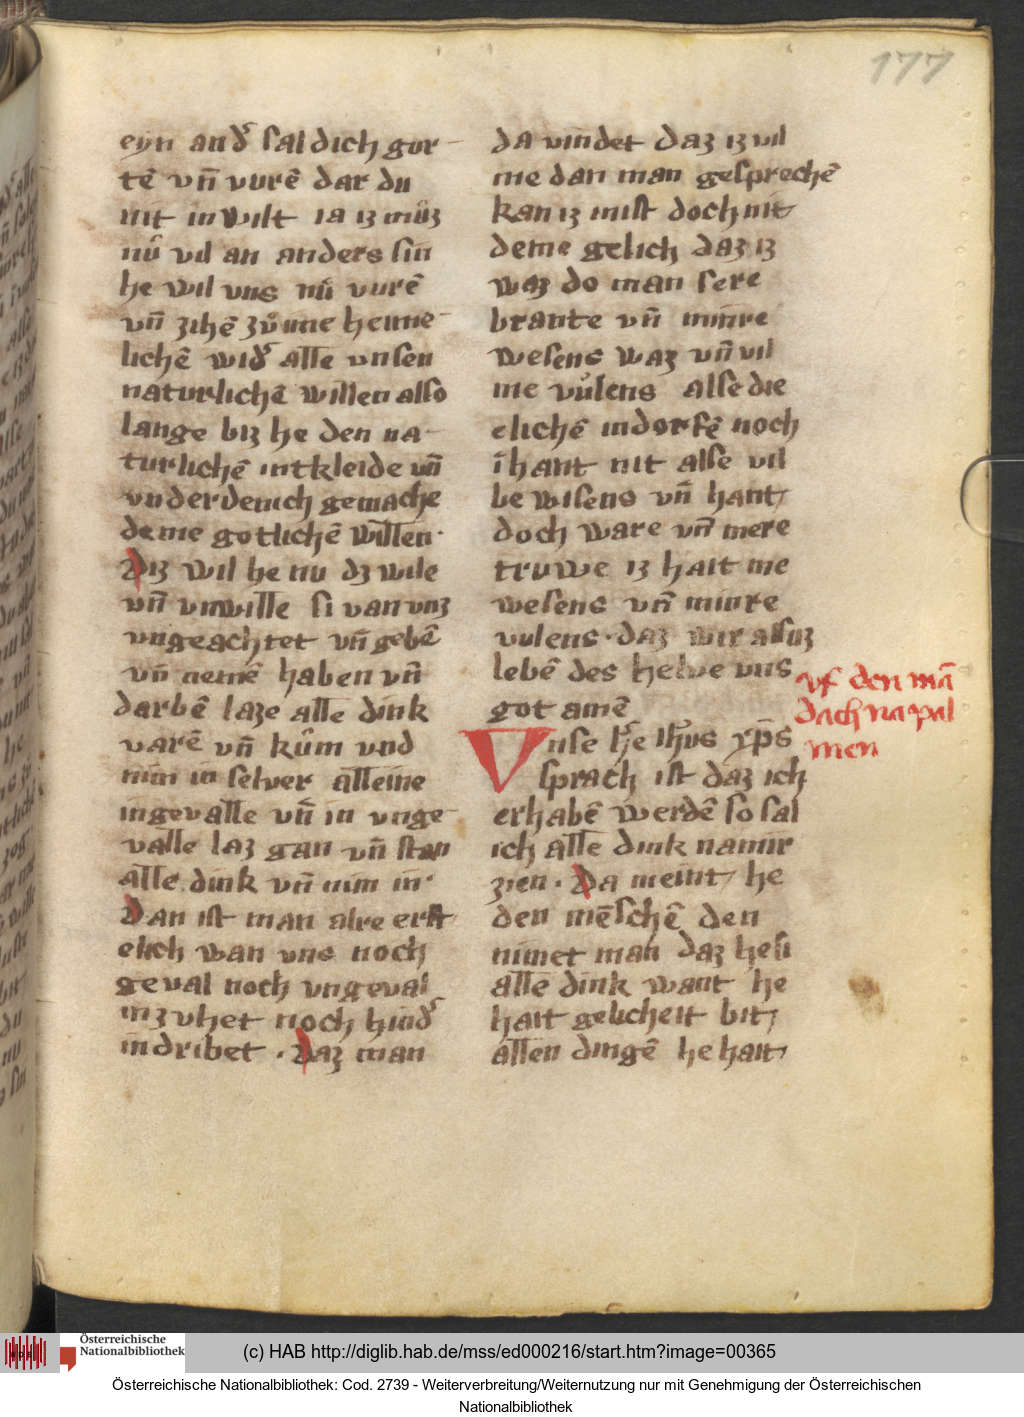 177
eyn and̛ sal dich gor-
tē vn̄ vurē dar du
nit in wilt ia iz můz
nů vil an anders sin
he wil vns nů vurē
vn̄ zihē zů ime heime-
lichē wid̛ alle vnsen
naturlichē willen also
lange biz he den na-
turlichē intkleide vn̄
vnderdenich gemache
deme gotlichē willen·
Diz wil he nu dz wile
vn̄ vnwille si van vnz
vngeachtet vn̄ gebē
vn̄ nemē haben vn̄
darbē laze alle dink
varē vn̄ kům vnd
nim in selver alleine
ingevalle vn̄ in vnge-
valle laz gan vn̄ stan
alle dink vn̄ nim in·
Dan ist man alre erst
elich wan vns noch
geval noch vngeval
inzvhet noch hind̛
indribet · Daz man
da vindet daz iz vil
me dan man gesprechē
kan iz inist doch nit
deme gelich daz iz
waz do man sere
brante vn̄ minre
wesens waz vn̄ vil
me vůlens alse die
elichē indorfē noch
in hant nit alse vil
bewisens vn̄ hant
doch ware vn̄ mere
truwe iz hait me
wesens vn̄ minre
vulens · daz wir alsuz
lebē des helve vns
got amē
vf den mā
dach na pal
men
Vnse h̄e ih̄us xp̄s
sprach ist daz ich
erhabē werdē so sal
ich alle dink na mir
zien · Da meint he
den mēschē den
nimet man daz he si
alle dink want he
hait gelicheit bit
allen dingē he hait
Österreichische
Nationalbibliothek
(c) HAB http://diglib.hab.de/mss/ed000216/start.htm?image=00365
Österreichische Nationalbibliothek: Cod. 2739 - Weiterverbreitung/Weiternutzung nur mit Genehmigung der Österreichischen
Nationalbibliothek